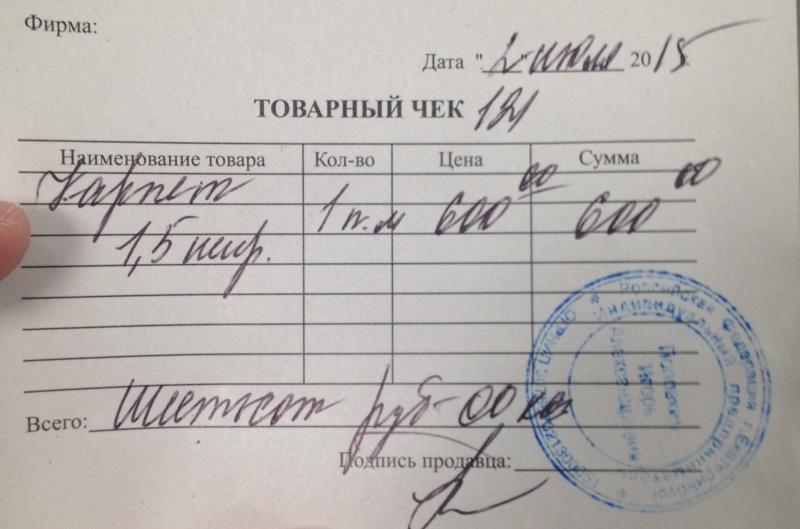 Фирма:
Дата "2" июля 2015.
ТОВАРНЫЙ ЧЕК 121
Наименование товара Кол-во Цена Сумма
Карпет 1 п.м 600 00 600 00
1,5 шир.
Всего: Шестьсот руб - 00 коп
Подпись продавца:
Российская Федерация г. Екатеринбург
Индивидуальный предприниматель
Игорь
Александрович